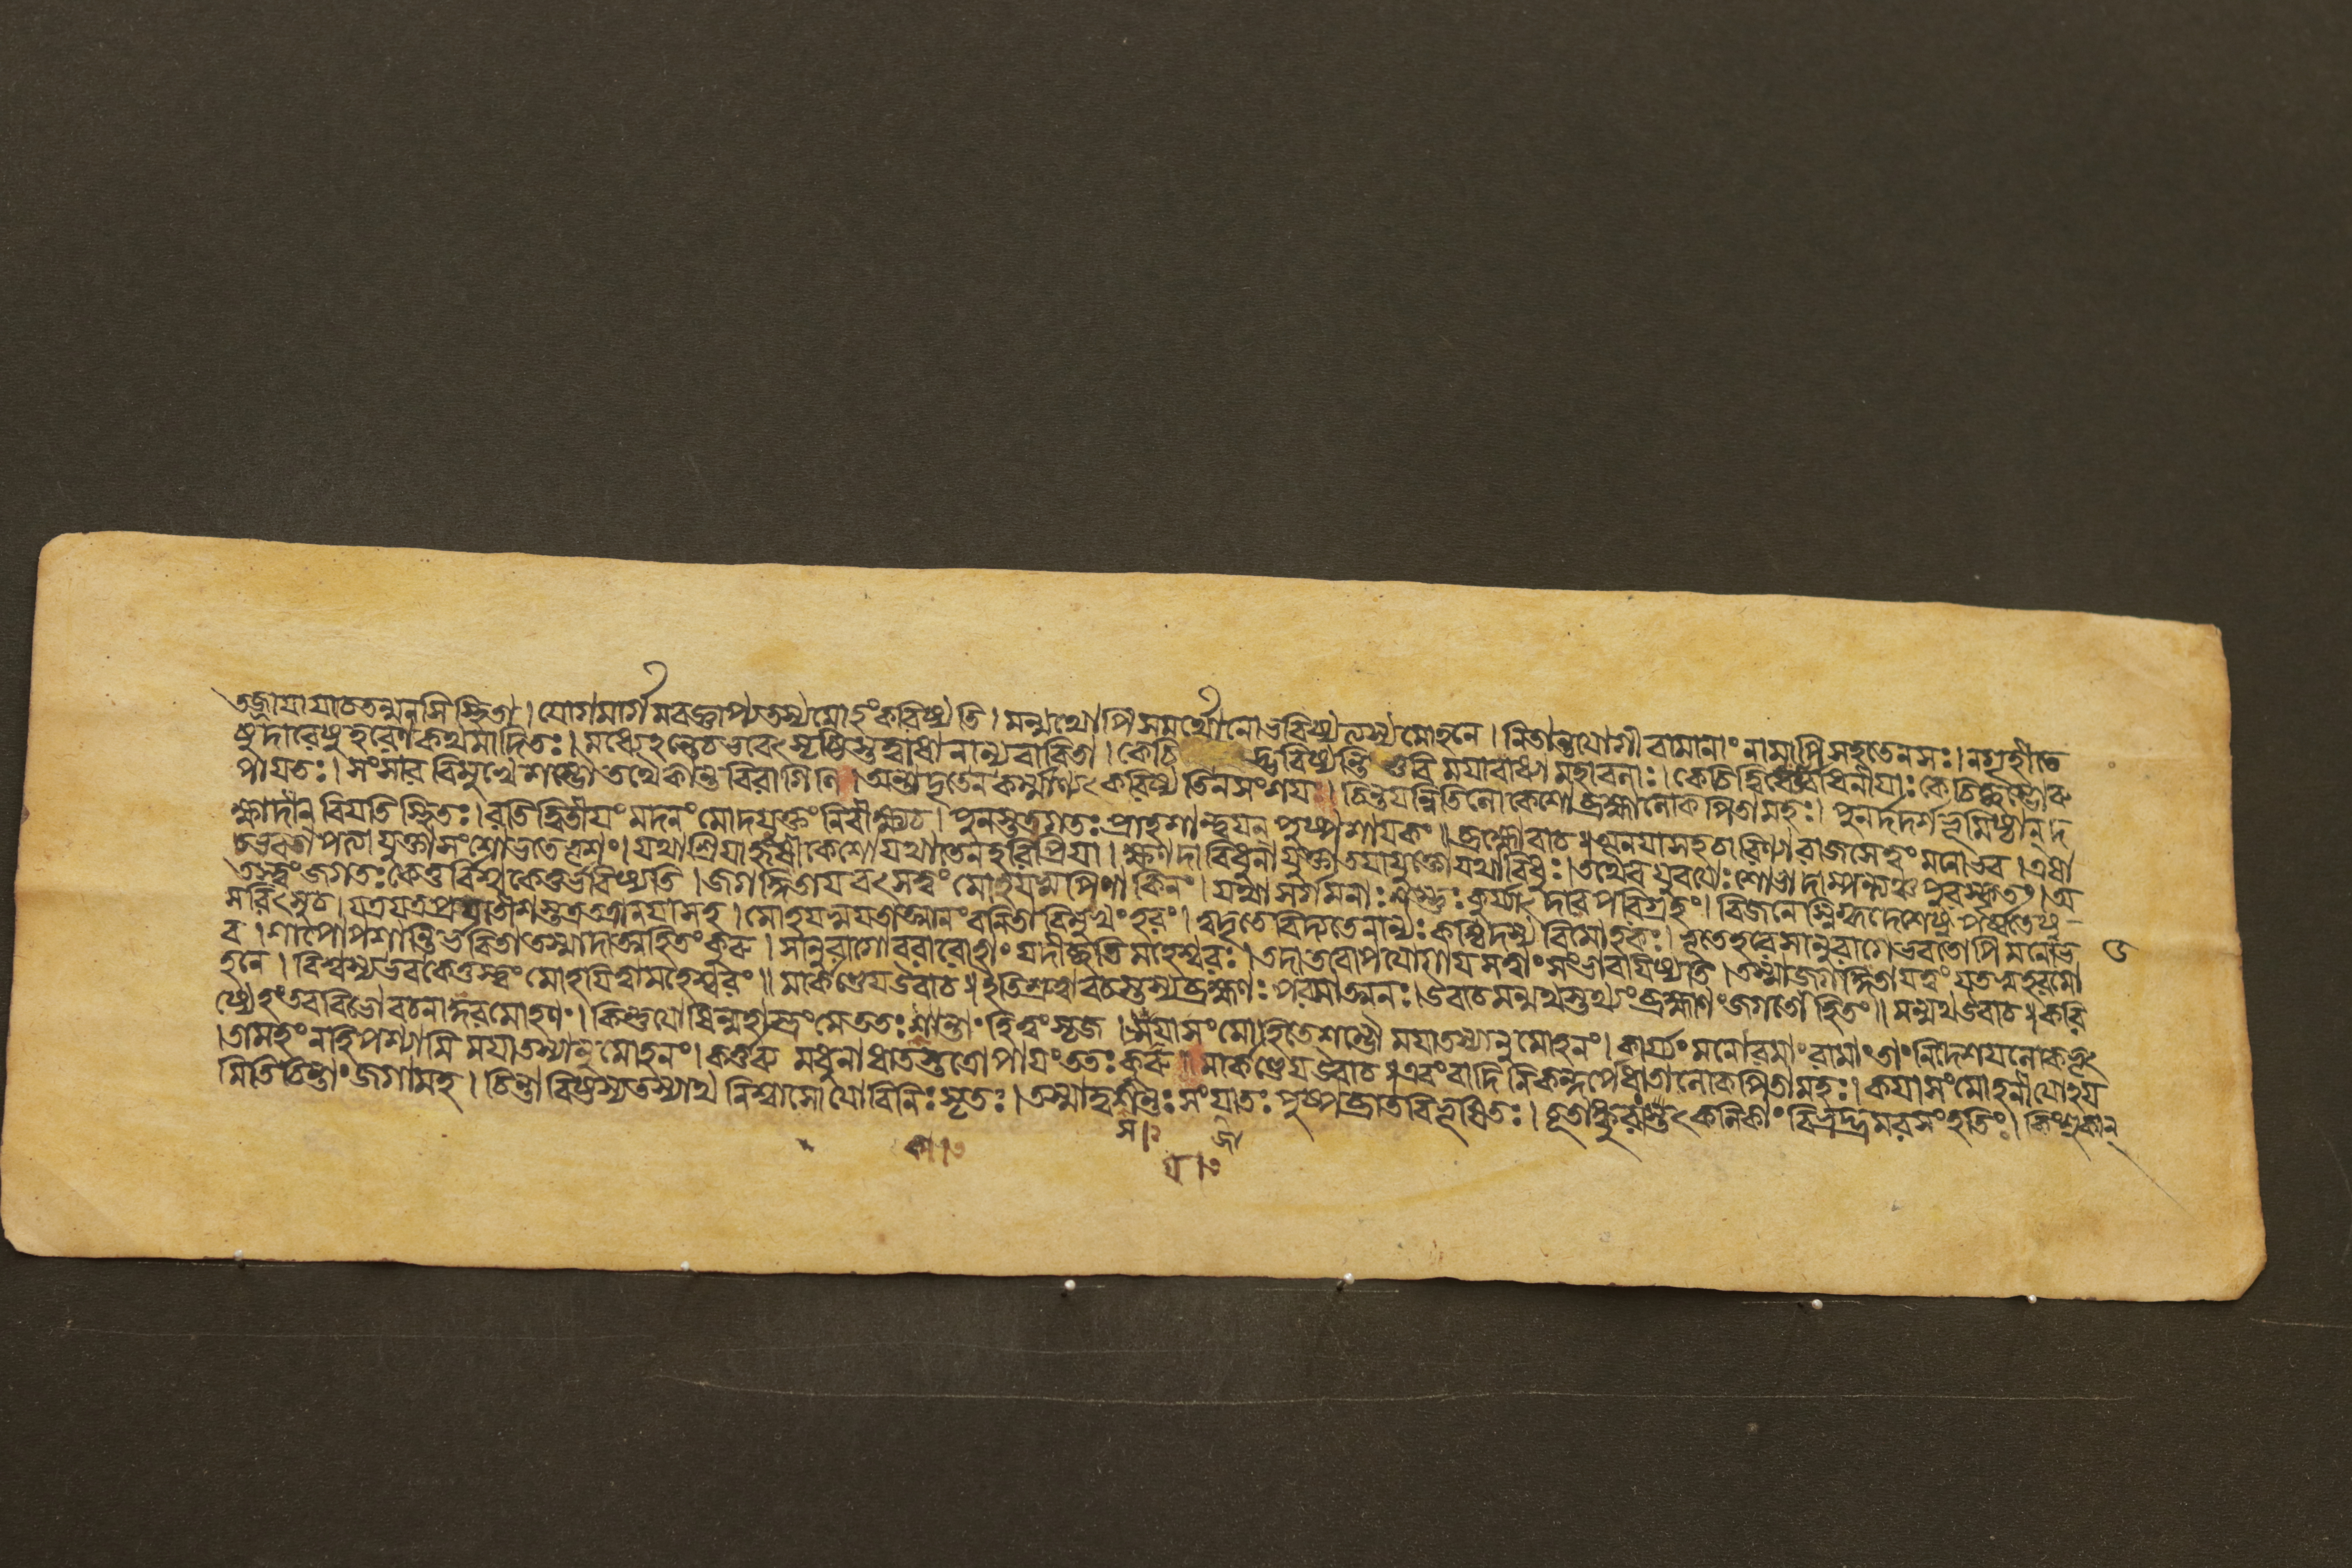 তজ্জায়া যাচতন্মনসি স্থিতা। যোগমার্গমবজ্ঞাপ্য তস্য মোহং করিষ্যতি। মন্মথোপি সমর্থো নো ভবিষ্যত্যস্য মোহনে। নিতান্তযোগী বামানাং নামাপি সহতে ন সঃ। নগৃহীতে
ষুদারেষু হরেণ কথমাদিতঃ। মধ্যেহন্তেচ ভবেৎ সৃষ্টিস্তদ্বাধা নান্যবারিতা। কেচি দ্ভবিষ্যন্তি ভুবি ময়া বাধ্যা মহাবলাঃ। কেচিদ্বি কেচিচ্ছম্ভোরু
পায়তঃ। সংসার বিমুখে শম্ভৌ তথৈকান্ত বিরাগিণি। অস্মাদৃতেন কর্ম্মাণ্যৎ করিষ্যতি ন সংশয়ঃ। চিন্তয়ন্নিতি লোকেশো ব্রহ্মা লোকপিতামহঃ। পুনর্দদর্শ ভূমিষ্ঠান্ দ
ক্ষাদীন্ বিয়তি স্থিতঃ। রতিদ্বিতীয়ং মদনং মোদযুক্তং নিরীক্ষ্যচ। পুনস্তত্র গতঃ প্রাহ শান্ত্বয়ন্ পুষ্পশায়কং॥ ব্রহ্মোবাচ॥ অনয়া সহচারিণ্যা রাজসে ত্বং মনোভব। এষা
চ ভবতা পত্যা যুক্তা সংশোভতে ভৃশং। যথা শ্রিয়া হৃষীকেশো যথা তেন হরিপ্রিয়া। ক্ষণদা বিধুনা যুক্তা তয়া যুক্তো যথা বিধুঃ। তথৈব যুবয়োঃ শোভা দাম্পত্যঞ্চ পুরস্কৃতং। অ
তস্ত্বং জগতঃ কেতু বিশ্বকেতুর্ভবিষ্যতি। জগদ্ধিতায় বৎস ত্বং মোহয়স্ব পিণাকিনং। যথা সর্গমনাঃ শম্ভুঃ কুর্য্যাৎ দারপরিগ্রহং। বিজনে স্নিগ্ধদেশেষু পর্ব্বতেষু
সরিৎসুচ। যত্র যত্র প্রয়াতীশস্তত্র তত্রানয়া সহ। মোহয়স্ব যতাত্মানং বনিতা বিমুখং হরং। ত্বদৃতে বিদ্যতে নান্যঃ কশ্চিদস্য বিমোহকঃ। ভূতে হরে সানুরাগে ভবতোপি মনোভ
ব। শাপোপশান্তির্ভবিতা তস্মাদাত্মহিতং কুরু। সানুরাগো বরারোহাং যদীচ্ছতি মহেশ্বরঃ। তদা তবোপযোগায় স ত্বাং সংভাবয়িষ্যতি। তস্মাজ্জগদ্ধিতায় ত্বং যতস্ব হরমো
হনে। বিশ্বস্য ভব কেতুস্ত্বং মোহয়িত্বা মহেশ্বরং॥ মার্কণ্ডেয় উবাচ॥ ইতি শ্রুত্বা বচস্তস্য ব্রহ্মণঃ পরমাত্মনঃ। উবাচ মন্মথস্তথ্যং ব্রহ্মাণং জগতো হিতং॥ মন্মথ উবাচ॥ করি
ষ্যেহং তব বিভো বচনাদ্ধরমোহণং। কিন্তু যোষিন্মহাস্ত্রং মে ততঃ কান্তাং হি ত্বং সৃজ। ময়া সংমোহিতে শম্ভৌ ময়া তস্যানুমোহনং। কার্য্যং মনোরমাং রামাং তাং নিদেশয় লোকভৃৎ
। তামহং নহি পশ্যামি ময়া তস্যানুমোহনং। কর্ত্তব্য মধুনা ধাতস্তত্রোপায়ং ততঃ কুরু॥ মার্কণ্ডেয় উবাচ॥ এবং বাদিনি কন্দর্পে ধাতা লোকপিতামহঃ। কয়া সংমোহনীয়োহয়
মিতি চিন্তাং জগামহ। চিন্তাবিষ্টস্য তস্যাথ নিশ্বাসো যো বিনিঃসৃতঃ। তস্মাদ্বসন্তঃ সংযাতঃ পুষ্পব্রাতবিভূষিতঃ। বিভ্রদ্ভ্রমরসংহতিং। কিংশুকান্